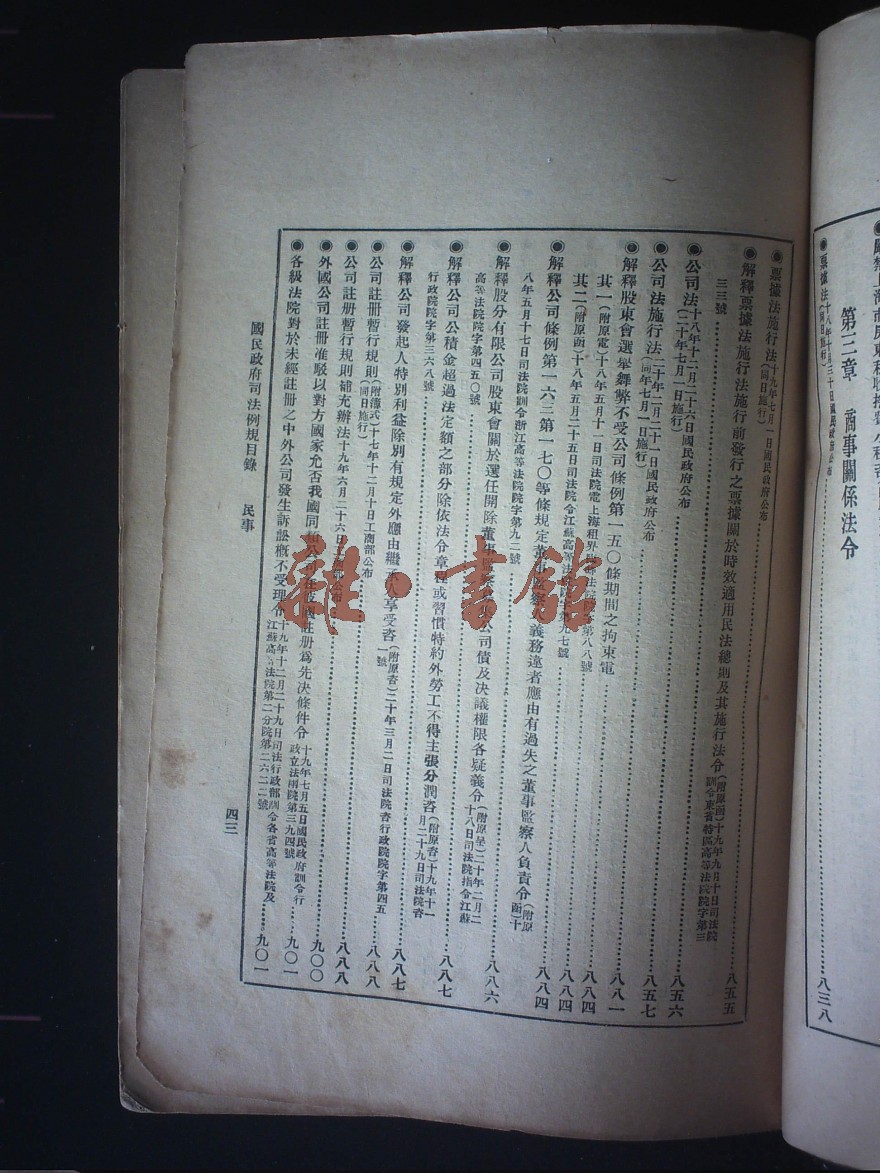 第三章　商事關係法令
◉票據法十八年十月三十日國民政府公布(同日施行)……八三八
◉票據法施行法十九年七月一日國民政府公布(同日施行)
◉解釋票據法施行法施行前發行之票據關於時效適用民法總則及其施行法令(附原函)十九年九月十日司法院訓令東省特區高等法院院字第三
三三號……八五五
◉公司法十八年十二月二十六日國民政府公布(二十年七月一日施行)……八五六
◉公司法施行法二十年二月二十一日國民政府公布(同年七月一日施行)……八五七
◉解釋股東會選舉舞弊不受公司條例第一五〇條期間之拘束電……八八一
其一(附原電)十八年五月十一日司法院電上海租界法院院字第八八號……八八四
其二(附原函)十八年五月二十五日司法院令江蘇高等法院院字第九七號……八八四
◉解釋公司條例第一六三第一七〇等條規定董事監察人義務違者應由有過失之董事監察人負責令(附原函)十
八年五月十七日司法院訓令浙江高等法院院字第九二號……八八四
◉解釋股分有限公司股東會關於選任開除董事監察公司債及決議權限各疑義令(附原呈)二十年二月二十八日司法院指令江蘇
高等法院院字第四五〇號……八八六
◉解釋公司公積金超過法定額之部分除依法令章程或習慣特約外勞工不得主張分潤咨(附原咨)十九年十一月二十九日司法院咨
行政院院字第三六八號……八八七
◉解釋公司發起人特別利益除別有規定外應由繼承人享受咨(附原咨)二十年三月二日司法院咨行政院院字第四五一號……八八七
◉公司註冊暫行規則(附簿式)十七年十二月十日工商部公布……八八八
◉公司註冊暫行規則補充辦法十九年六月二十六日工商部公布……八八八
◉外國公司註冊准駁以對方國家允否我國同類公司在彼國註冊爲先決條件令十九年七月五日國民政府訓令行政立法兩院第三九四號……九〇〇
◉各級法院對於未經註冊之中外公司發生訴訟概不受理令十九年十二月二十九日司法行政部訓令各省高等法院及江蘇高等法院第二分院第二六二二號……九〇一
九〇一
國民政府司法例規目錄　民事　四三
雜·書館